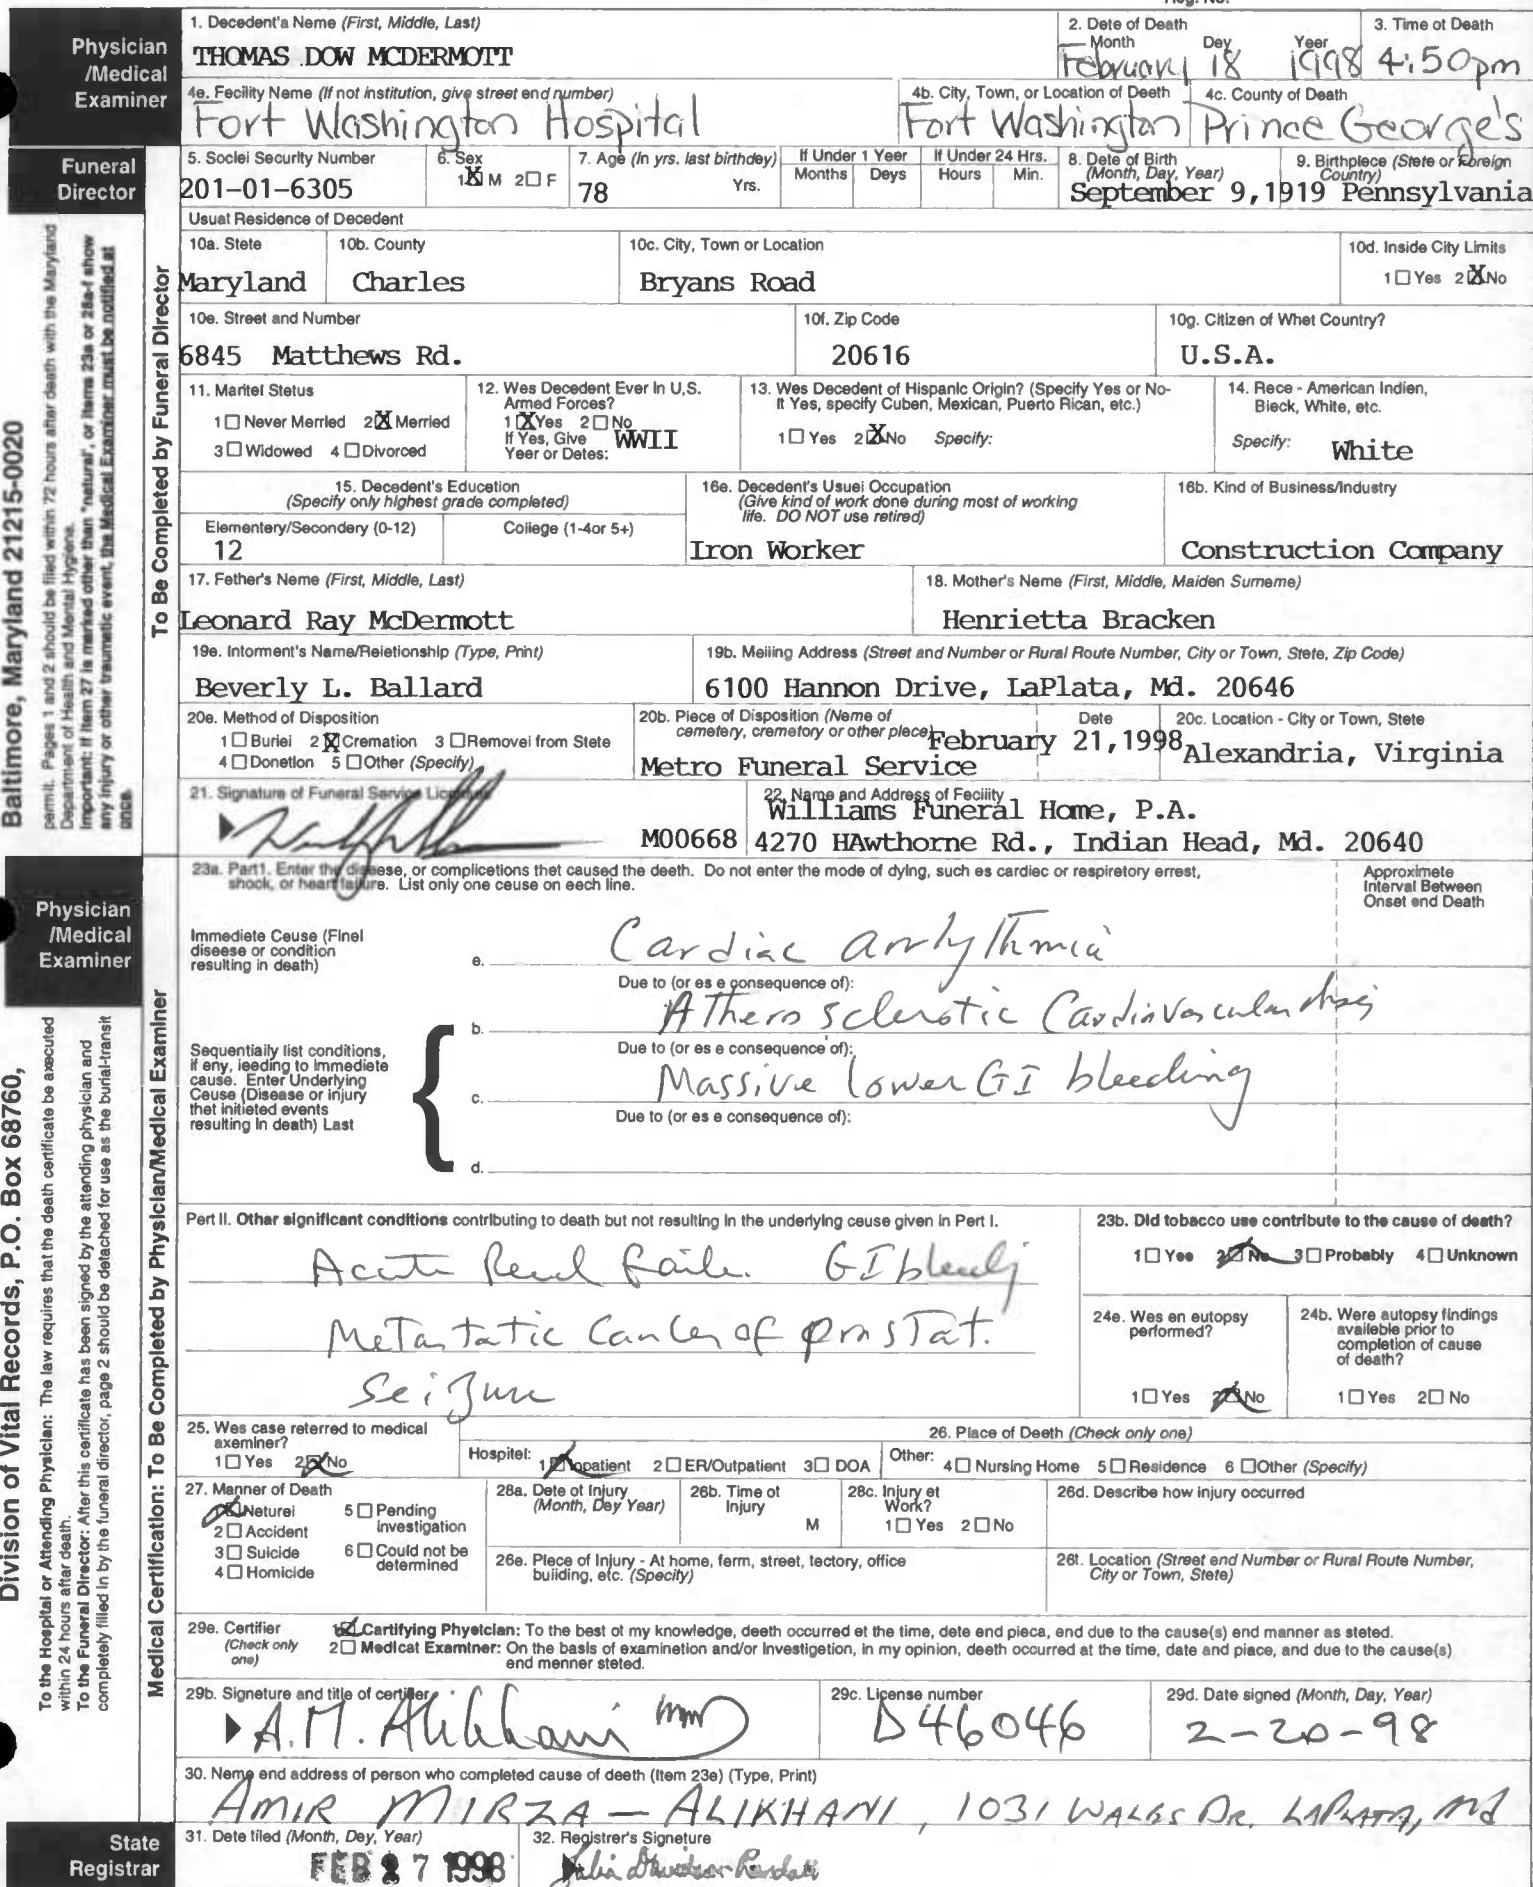 Physician
/Medical
Examiner
1. Decedent'a Neme (First, Middle, Last)
THOMAS DOW MCDERMOTT
2. Dete of Death
Month Dey Yeer
February 18 1998
3. Time ot Death
4:50pm
4e. Fecility Neme (If not institution, give street end number)
Fort Washington Hospital
4b. City, Town, or Location of Deeth
Fort Washington
4c. County of Death
Prince George's
Funeral
Director
5. Sociei Security Number
201-01-6305
6. Sex
1☒ M 2☐ F
7. Age (In yrs. last birthdey)
78 Yrs.
If Under 1 Yeer
Months Deys
If Under 24 Hrs.
Hours Min.
8. Dete of Birth
(Month, Day, Year)
September 9,1919
9. Birthplece (Stete or Foreign
Country)
Pennsylvania
Usuat Residence of Decedent
10a. Stete
Maryland
10b. County
Charles
10c. City, Town or Location
Bryans Road
10d. Inside City Limits
1☐ Yes 2☒ No
10e. Street and Number
6845 Matthews Rd.
10f. Zip Code
20616
10g. Citizen of Whet Country?
U.S.A.
11. Maritel Stetus
1☐ Never Merried 2☒ Merried
3☐ Widowed 4☐ Divorced
12. Wes Decedent Ever in U,S.
Armed Forces?
1☒ Yes 2☐ No
If Yes, Give
Yeer or Detes: WWII
13. Wes Decedent of Hispanic Origin? (Specify Yes or No-
It Yes, specify Cuben, Mexican, Puerto Rican, etc.)
1☐ Yes 2☒ No Specify:
14. Rece - American Indien,
Bieck, White, etc.
Specify: White
15. Decedent's Education
(Specify only highest grade completed)
Elementery/Secondery (0-12)
12
Coilege (1-4or 5+)
16e. Decedent's Usuei Occupation
(Give kind of work done during most of working
life. DO NOT use retired)
Iron Worker
16b. Kind of Business/Industry
Construction Company
17. Fether's Name (First, Middle, Last)
Leonard Ray McDermott
18. Mother's Name (First, Middle, Maiden Surneme)
Henrietta Bracken
19e. Intorment's Neme/Reietionship (Type, Print)
Beverly L. Ballard
19b. Meiling Address (Street and Number or Rural Route Number, City or Town, Stete, Zip Code)
6100 Hannon Drive, LaPlata, Md. 20646
20e. Method of Disposition
1☐ Buriei 2☒ Cremation 3☐ Removei from Stete
4☐ Donetion 5☐ Other (Specify)
20b. Piece of Disposition (Neme of
cemetery, cremetory or other plece)
Metro Funeral Service
Dete
February 21,1998
20c. Location - City or Town, Stete
Alexandria, Virginia
21. Signature of Funeral Service
M00668
22. Name and Address of Feciiity
Williams Funeral Home, P.A.
4270 HAwthorne Rd., Indian Head, Md. 20640
Baltimore, Maryland 21215-0020
permit. Pages 1 and 2 should be filed within 72 hours after death with the Maryland
Department of Health and Mental Hygiene.
Important: If Item 27 is marked other than "natural", or items 23a or 28a-f show
any injury or other traumetic event, the Medical Examiner must be notified at
once.
To Be Completed by Funeral Director
Physician
/Medical
Examiner
23a. Part1. Enter the disease, or complicetions thet caused the death. Do not enter the mode of dying, such es cardiec or respiretory errest,
shock, or heart failure. List only one ceuse on eech line.
Approximete
Interval Between
Onset end Death
Immediete Ceuse (Finel
diseese or condition
resulting in death)
e. Cardiac arrhythmia
Due to (or es e consequence of):
b. Atherosclerotic Cardiovascular
Due to (or es e consequence of):
c. Massive lower GI bleeding
Due to (or es e consequence of):
d.
Sequentially list conditions,
if eny, ieeding to immediete
cause. Enter Underlying
Ceuse (Disease or injury
thet initieted events
resulting in death) Last
Part II. Other significant conditions contributing to death but not resulting in the underlying ceuse given in Part I.
Acute Renal GI
Metastatic Cancer of prostat.
Seizure
23b. Did tobacco use contribute to the cause of death?
1☐ Yee 2☒ No 3☐ Probably 4☐ Unknown
24e. Wes en eutopsy
performed?
1☐ Yes 2☒ No
24b. Were autopsy findings
available prior to
completion of cause
of death?
1☐ Yes 2☐ No
25. Wes case referred to medical
axeminer?
1☐ Yes 2☒ No
26. Place of Deeth (Check only one)
Hospitel: 1☒ Inpatient 2☐ ER/Outpatient 3☐ DOA
Other: 4☐ Nursing Home 5☐ Residence 6☐ Other (Specify)
27. Manner of Death
☒ Neturei
2☐ Accident
3☐ Suicide
4☐ Homicide
5☐ Pending
investigation
6☐ Could not be
determined
28a. Dete ot Injury
(Month, Dey Year)
26b. Time of
Injury
M
28c. Injury et
Work?
1☐ Yes 2☐ No
26d. Describe how injury occurred
26e. Plece of Injury - At home, ferm, street, tectory, office
buiiding, etc. (Specify)
26t. Location (Street end Number or Rural Route Number,
City or Town, Stete)
29e. Certifier
(Check only
one)
1☒ Cartifying Phyetclan: To the best ot my knowledge, deeth occurred et the time, dete end pieca, end due to the cause(s) end manner as steted.
2☐ Medicat Examtner: On the basis of examinetion and/or Investigetion, in my opinion, deeth occurred at the time, date and piace, and due to the cause(s)
end menner steted.
29b. Signeture and title of certifier
A.M. Alikhani MD
29c. License number
D46046
29d. Date signed (Month, Day, Year)
2-20-98
30. Neme end address of person who completed cause of deeth (Item 23e) (Type, Print)
AMIR MIRZA - ALIKHANI, 1031 WALES DR. LAPLATA, Md
Division of Vital Records, P.O. Box 68760,
To the Hospital or Attending Physician: The law requires that the death certificate be axecuted
within 24 hours after death.
To the Funeral Director: After this certificate has been signed by the attending physician and
completely filled in by the funeral director, page 2 should be detached for use as the burial-transit
Medical Certification: To Be Completed by Physician/Medical Examiner
State
Registrar
31. Dete tiled (Month, Dey, Year)
FEB 27 1998
32. Registrer's Signeture